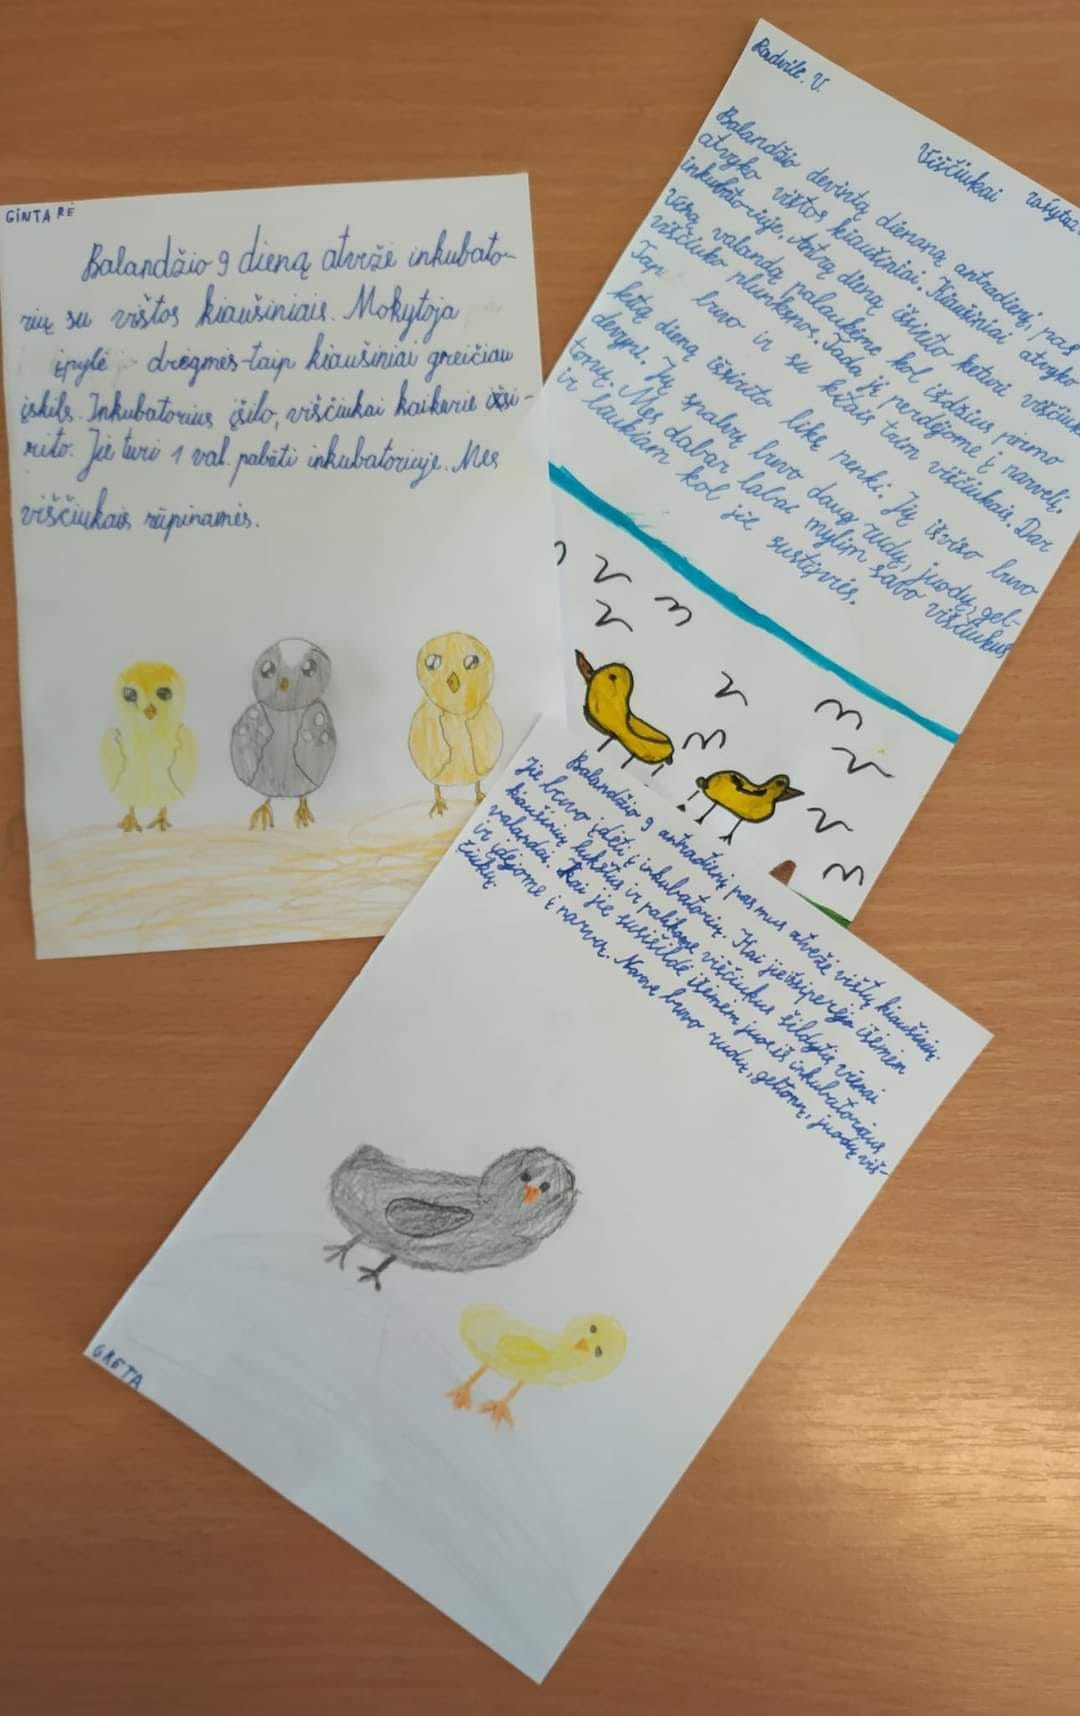 GINTARĖ
Balandžio 9 dieną atvežė inkubato-
rių su vištos kiaušiniais. Mokytoja
įpylė drėgmės-taip kiaušiniai greičiau
įskils. Inkubatorius įšilo, viščiukai kaikurie išsi-
rito. Jie turi 1 val. pabūti inkubatoriuje. Mes
viščiukais rūpinamės.
Radvilė. V.
Viščiukai
Balandžio devintą dienaną antradienį, pas
atvyko vištos kiaušiniai. Kiaušiniai atvyko
inkubatoriuje. Antrą dieną išsirito keturi viščiuk
Vieną valandą palaukėme kol išdžius pirmo
viščiuko plunksnos. Tada jį perdėjome į narvelį.
Taip buvo ir su kitais trim viščiukais. Dar
kitą dieną išsirito likę penki. Jų išviso buvo
devyni. Jų spalvų buvo daug rudų, juodų, gel-
tonų. Mes dabar labai mylim savo viščiukus
ir laukiam kol jie sustiprės.
Balandžio 9 antradienį pas mus atvežė vištų kiaušinių.
Jie buvo įdėti į inkubatorių. Kai jie išsiperėjo išėmėm
kiaušinių lukštus ir palikome viščiukus šildytis vienai
valandai. Kai jie susišildė išėmėm juos iš inkubatoriaus
ir įdėjome į narvą. Narve buvo rudų, geltonų, juodų viš-
čiukų.
GRETA